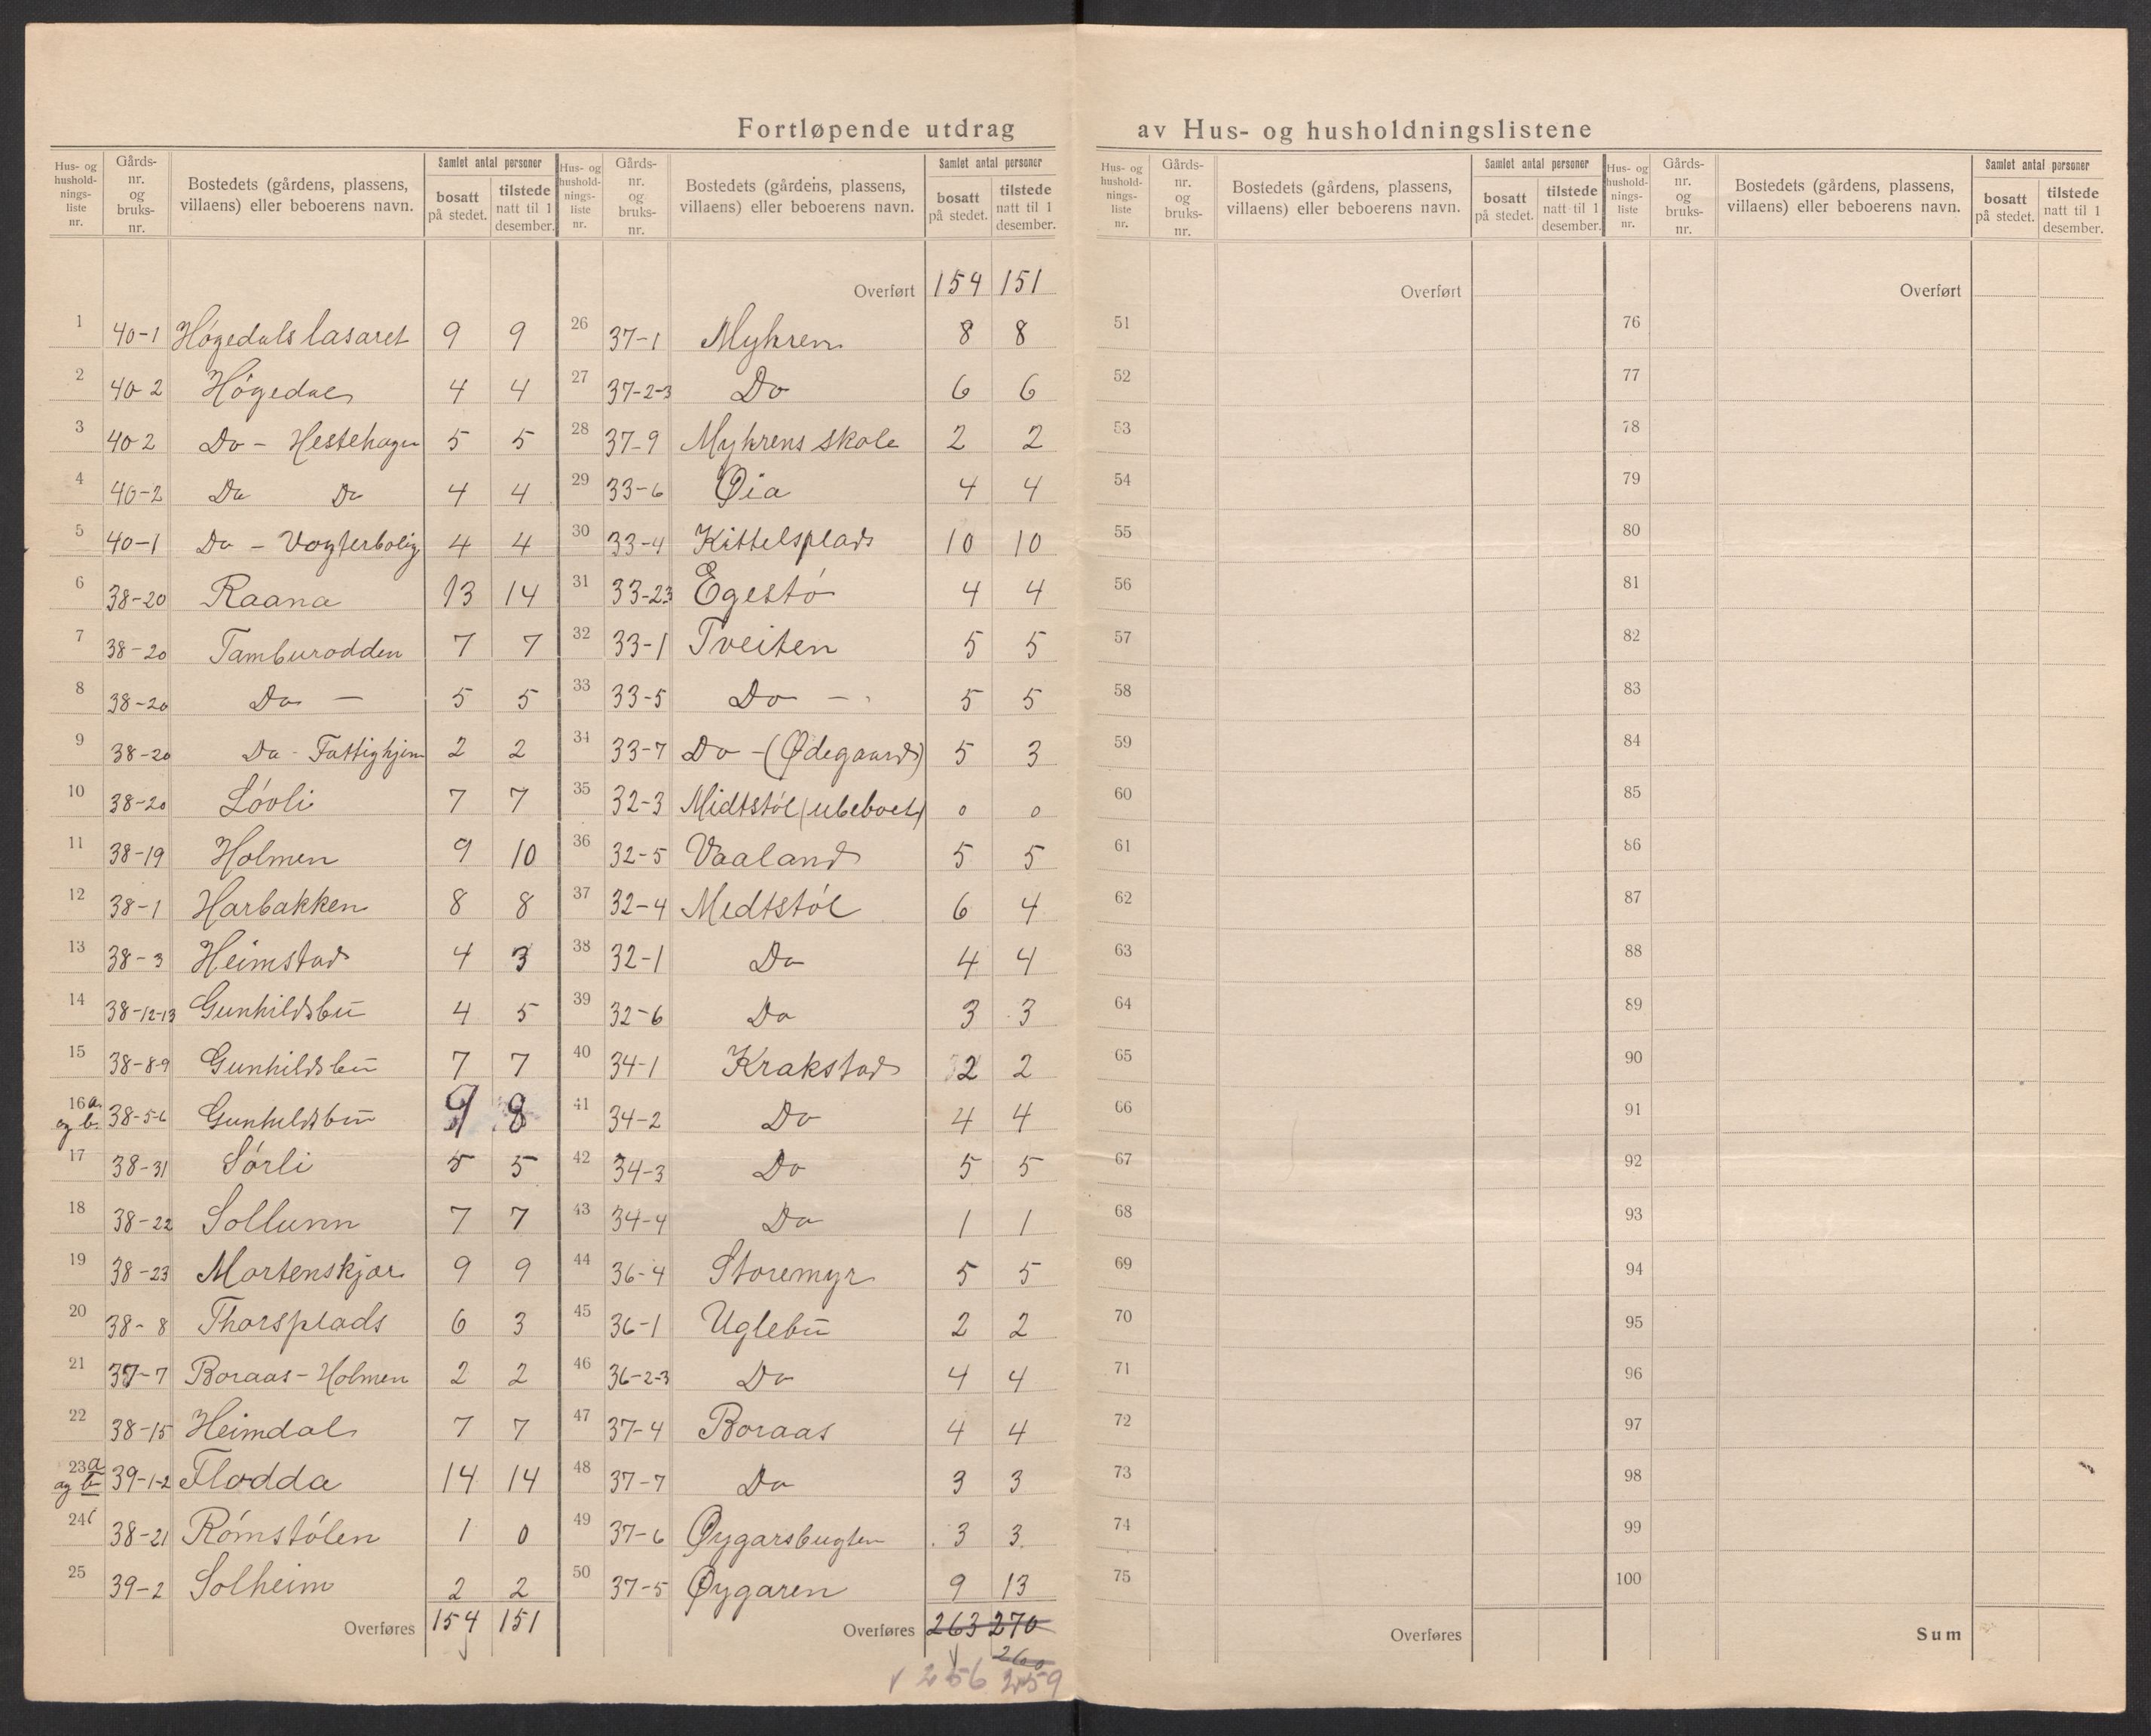 Fortløpende utdrag av Hus- og husholdningslistene
Hus- og hushold-nings-liste nr. | Gårds-nr. og bruks-nr. | Bostedets (gårdens, plassens, villaens) eller beboerens navn. | Samlet antal personer bosatt på stedet. | tilstede natt til 1 desember.
1 40-1 Høgedals lasaret 9 9
2 40-2 Høgedal 4 4
3 40-2 Do - Hestehagen 5 5
4 40-2 Do Do 4 4
5 40-1 Do - Vogterbolig 4 4
6 38-20 Raana 13 14
7 38-20 Tamburodden 7 7
8 38-20 Do — 5 5
9 38-20 Do - Fattighjem 2 2
10 38-20 Løvli 7 7
11 38-19 Holmen 9 10
12 38-1 Harbakken 8 8
13 38-3 Heimstad 4 3
14 38-12-13 Gunhildsbu 4 5
15 38-8-9 Gunhildsbu 7 7
16 a og b. 38-5-6 Gunhildsbu 9 8
17 38-31 Sørli 5 5
18 38-22 Sollunn 7 7
19 38-23 Mortenskjær 9 9
20 38-8 Thorsplads 6 3
21 37-7 Boraas-Holmen 2 2
22 38-15 Heimdal 7 7
23 a og b 39-1-2 Flodda 14 14
24 38-21 Rømstølen 1 0
25 39-2 Solheim 2 2
Overføres 154 151
Hus- og hushold-nings-liste nr. | Gårds-nr. og bruks-nr. | Bostedets (gårdens, plassens, villaens) eller beboerens navn. | Samlet antal personer bosatt på stedet. | tilstede natt til 1 desember.
Overført 154 151
26 37-1 Myhren 8 8
27 37-2-3 Do 6 6
28 37-9 Myhrens skole 2 2
29 33-6 Øia 4 4
30 33-4 Kittelsplads 10 10
31 33-23 Egestø 4 4
32 33-1 Tveiten 5 5
33 33-5 Do - 5 5
34 33-7 Do - (Ødegaard) 5 3
35 32-3 Midtstøl (ubeboet) 0 0
36 32-5 Vaaland 5 5
37 32-4 Medtstøl 6 4
38 32-1 Do 4 4
39 32-6 Do 3 3
40 34-1 Krakstad 2 2
41 34-2 Do 4 4
42 34-3 Do 5 5
43 34-4 Do 1 1
44 36-4 Storemyr 5 5
45 36-1 Uglebu 2 2
46 36-2-3 Do 4 4
47 37-4 Boraas 4 4
48 37-7 Do 3 3
49 37-6 Øygarsbugten 3 3
50 37-5 Øygaren 9 13
Overføres 263 270
260
256 259
Hus- og hushold-nings-liste nr. | Gårds-nr. og bruks-nr. | Bostedets (gårdens, plassens, villaens) eller beboerens navn. | Samlet antal personer bosatt på stedet. | tilstede natt til 1 desember.
Overført
51
52
53
54
55
56
57
58
59
60
61
62
63
64
65
66
67
68
69
70
71
72
73
74
75
Overføres
Hus- og hushold-nings-liste nr. | Gårds-nr. og bruks-nr. | Bostedets (gårdens, plassens, villaens) eller beboerens navn. | Samlet antal personer bosatt på stedet. | tilstede natt til 1 desember.
Overført
76
77
78
79
80
81
82
83
84
85
86
87
88
89
90
91
92
93
94
95
96
97
98
99
100
Sum